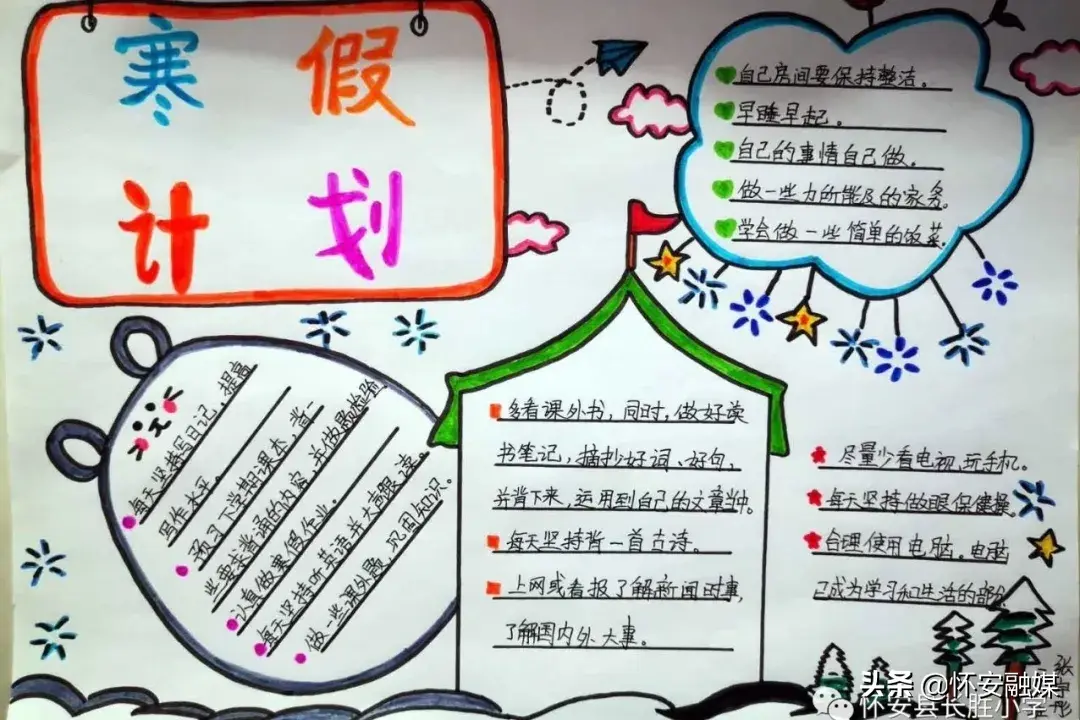 寒 假
计 划
自己房间要保持整洁。
早睡早起。
自己的事情自己做。
做一些力所能及的家务。
学会做一些简单的饭菜。
每天坚持写日记，提高
写作水平。
预习下学期课本，背一
些要求背诵的内容，并做题检验。
认真做寒假作业。
每天坚持听英语并大声跟读。
做一些课外题，巩固知识。
多看课外书，同时，做好读
书笔记，摘抄好词、好句，
并背下来，运用到自己的文章当中。
每天坚持背一首古诗。
上网或看报了解新闻时事，
了解国内外大事。
尽量少看电视，玩手机。
每天坚持做眼保健操。
合理使用电脑。电脑
已成为学习和生活的部分
头条 @怀安融媒
怀安县长胜小学